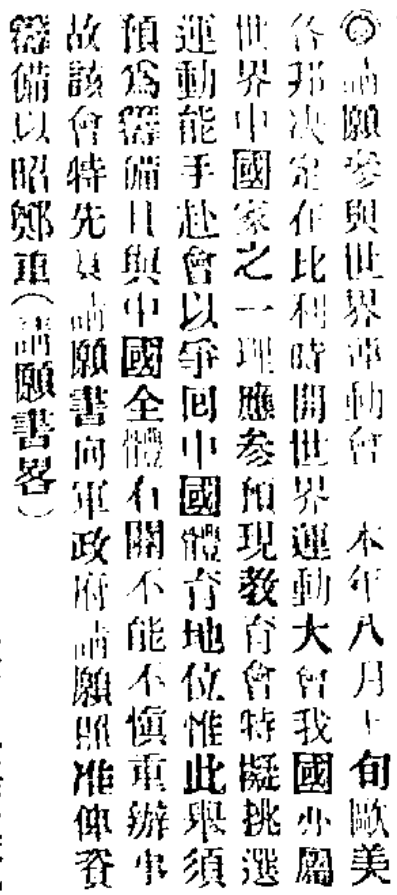 ◎請願參與世界運動會　本年八月上旬歐美
各邦决定在比利時開世界運動大會我國亦屬
世界中國家之一理應参預現教育會特擬挑選
運動能手赴會以爭回中國體育地位惟此舉須
預爲籌備且與中國全體有關不能不慎重辦事
故該會特先具請願書向軍政府請願照准俾資
籌備以昭鄭重（請願書畧）